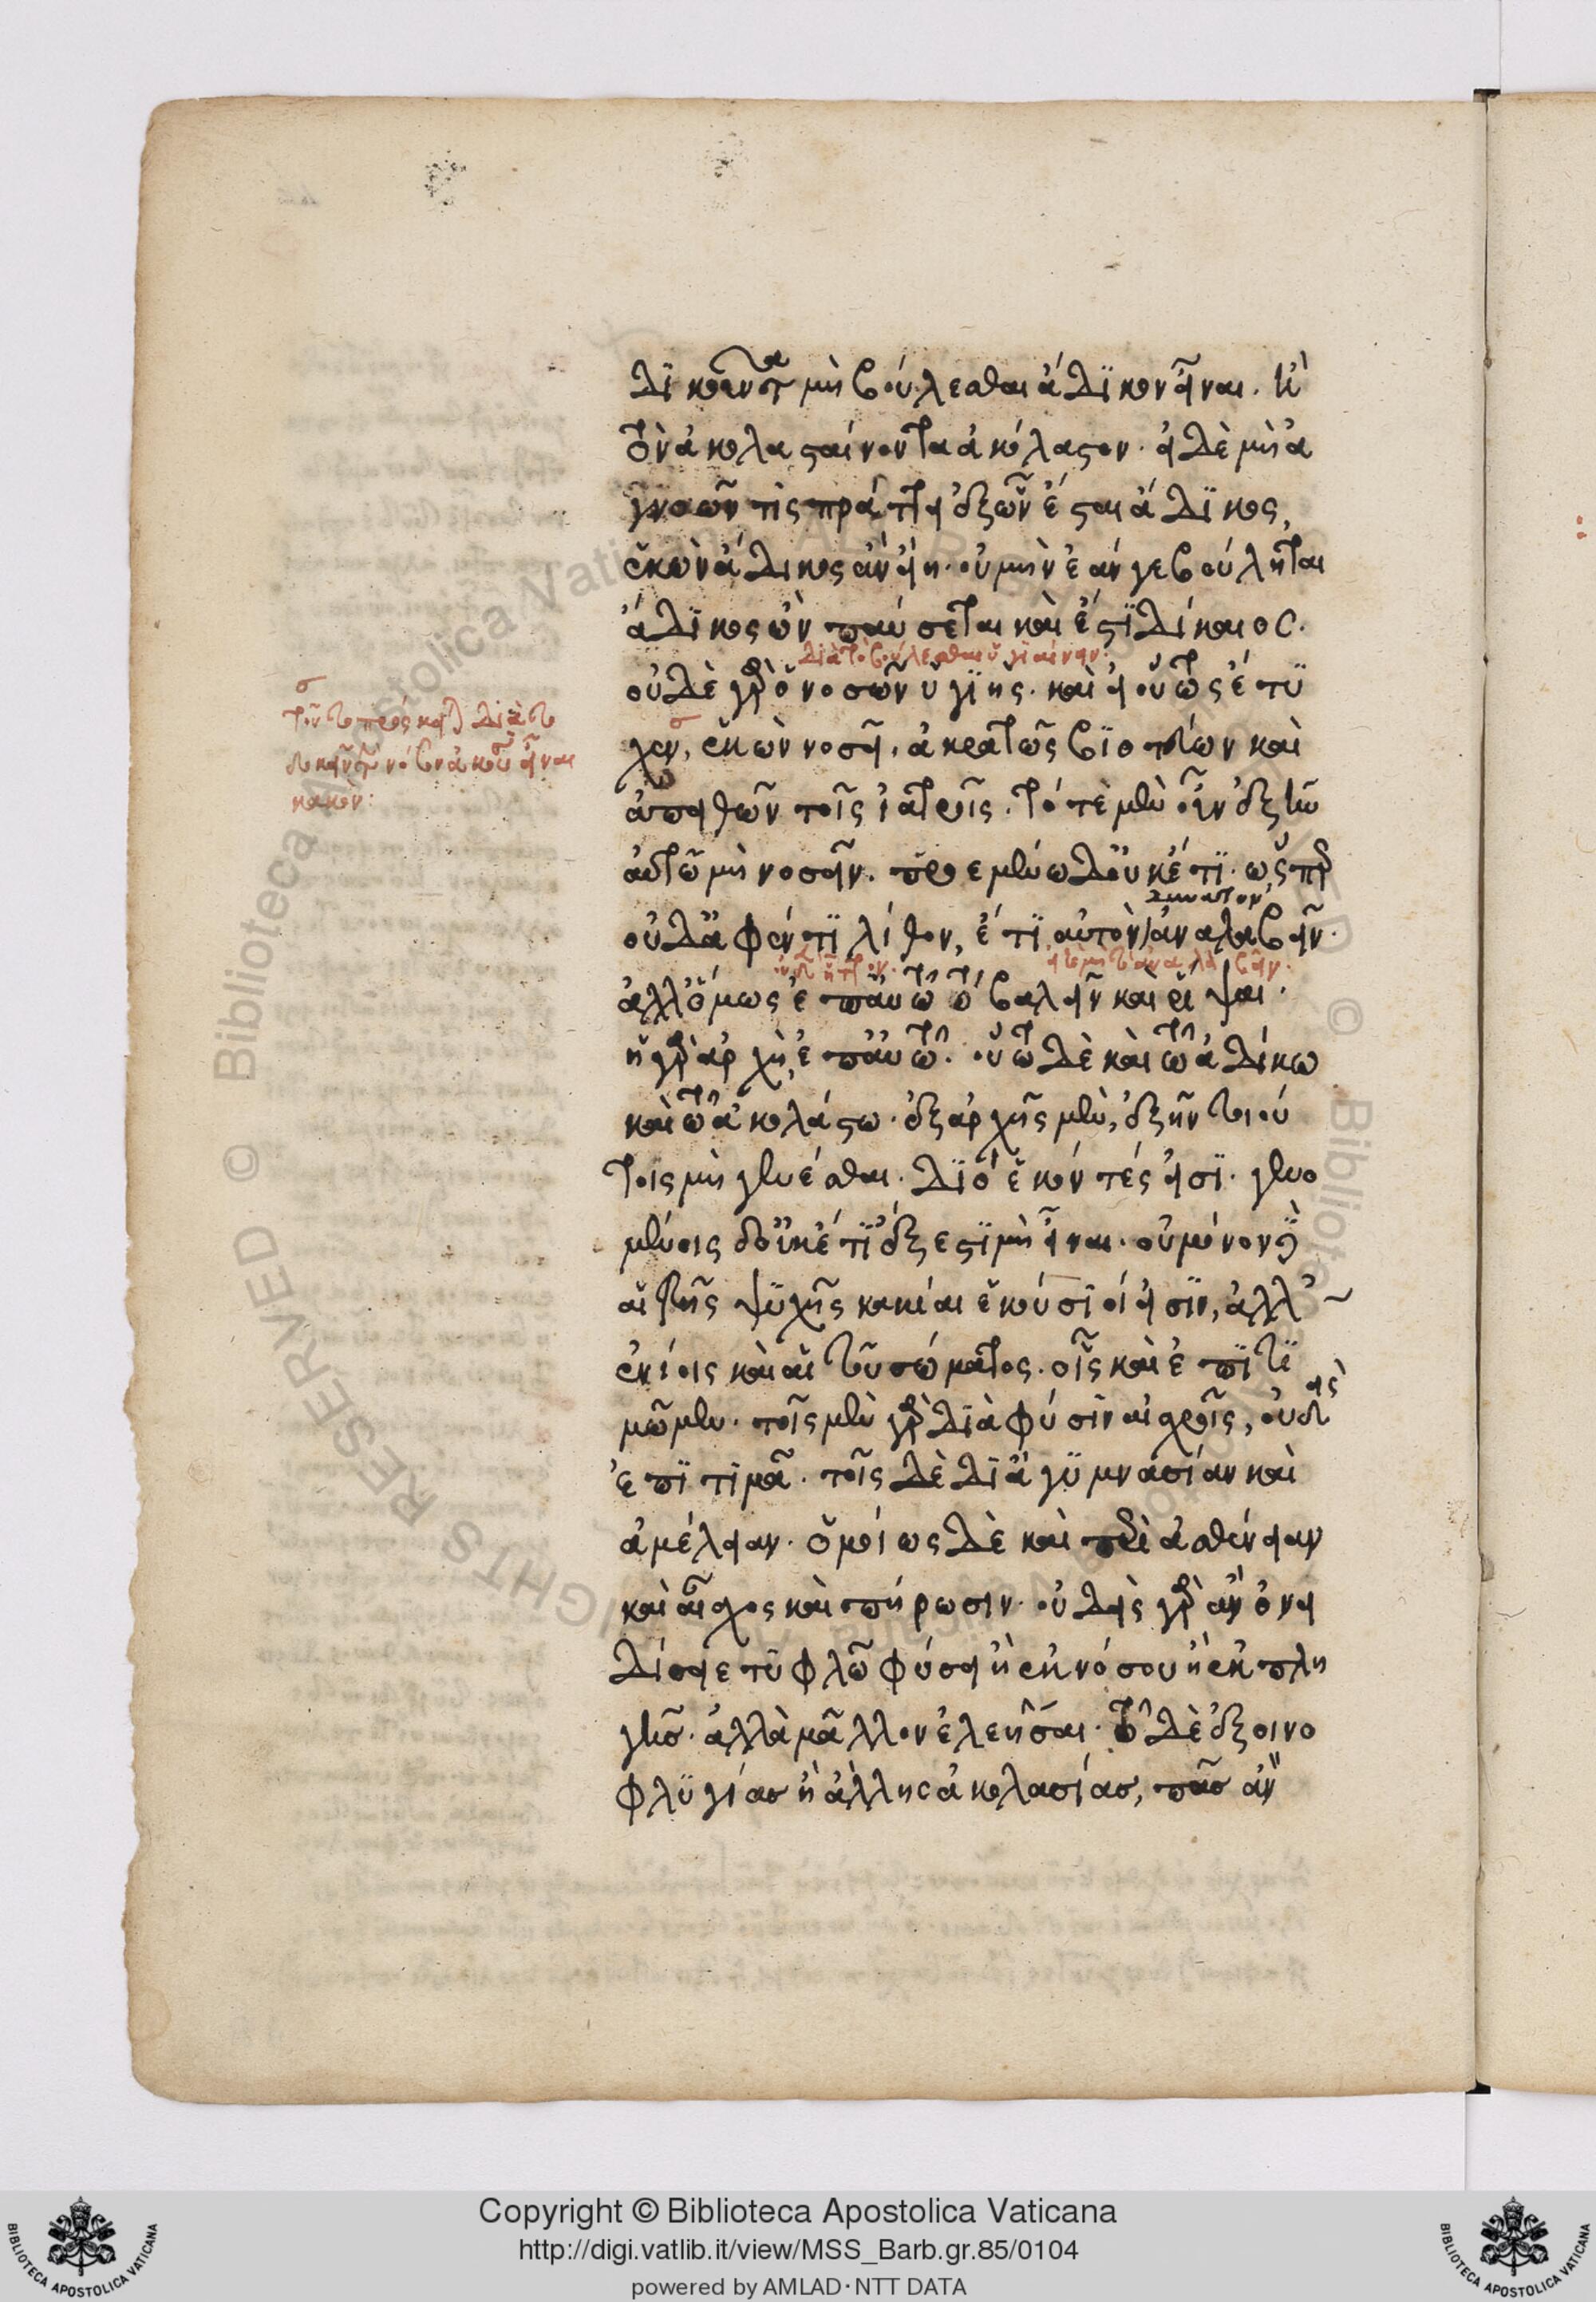 δικοῦντα μὴ βούλεσθαι ἄδικον εἶναι. κὶ
τὸν ἀκολασταίνοντα ἀκόλαστον. εἰ δὲ μὴ ἀ
γνοῶν τὶς πράττει ἐξ ὧν ἔσται ἄδικος,
ἑκὼν ἄδικος ἂν εἴη. οὐ μὴν ἐάν γε βούληται
ἄδικος ὢν παύσεται καὶ ἔστι δίκαιος.
διὰ τὸ βούλεσθαι ὑγιαίνειν.
οὐδὲ γὰρ ὁ νοσῶν ὑγιής. καὶ εἰ οὕτως ἔτυ
χεν, ἑκὼν νοσεῖ, ἀκρατῶς βιοτεύων καὶ
ἀπειθῶν τοῖς ἰατροῖς. τότε μὲν οὖν ἐξῆν
αὐτῶ μὴ νοσεῖν. προεμένω δ' οὐκέτι. ὥσπερ
δυνατὸν
οὐδ' ἀφέντι λίθον, ἔτι αὐτὸν ἀναλαβεῖν.
ἀλλ' ὅμως ἐπ' αὐτῶ τὸ βαλεῖν καὶ ῥίψαι.
ἡ γὰρ ἀρχὴ, ἐπ' αὐτῶ. οὕτω δὲ καὶ τῶ ἀδίκω
καὶ τῶ ἀκολάστω. ἐξ ἀρχῆς μὲν, ἐξῆν τοιού
τοις μὴ γενέσθαι. διὸ ἑκόντές εἰσι. γενο
μένοις δ' οὐκέτι ἔξεστι μὴ εἶναι. οὐ μόνον δὲ
αἱ τῆς ψυχῆς κακίαι ἑκούσιοί εἰσιν, ἀλλ'
ἐνίοις καὶ αἱ τοῦ σώματος. οἷς καὶ ἐπιτι
μῶμεν. τοῖς μὲν γὰρ διὰ φύσιν αἰσχροῖς, οὐδεὶς
ἐπιτιμᾶ. τοῖς δὲ δι' ἀγυμνασίαν καὶ
ἀμέλειαν. ὁμοίως δὲ καὶ περὶ ἀσθένειαν
καὶ αἶσχος καὶ πήρωσιν. οὐδεὶς γὰρ ἂν ὀνει
δίσειε τυφλῶ φύσει ἢ ἐκ νόσου ἢ ἐκ πλη
γῆσ. ἀλλὰ μᾶλλον ἐλεῆσαι. τῶ δὲ ἐξ οἰνο
φλυγίασ ἢ ἄλλης ἀκολασίασ, πᾶσ ἂν